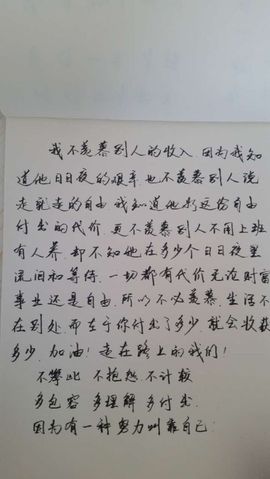 我不羡慕别人的收入 因为我知
道他日日夜的艰辛 也不羡慕别人说
走就走的自由 我知道他为这份自由
付出的代价 更不羡慕别人不用上班
有人养. 却不知他在多少个日日夜里
流泪和等待. 一切都有代价 无论财富
事业还是自由. 所以不必羡慕. 生活不
在别处 而在于你付出了多少. 就会收获
多少. 加油! 走在路上的我们!
不攀比 不抱怨 不计较
多包容 多理解 多付出.
因为有一种努力叫靠自己.